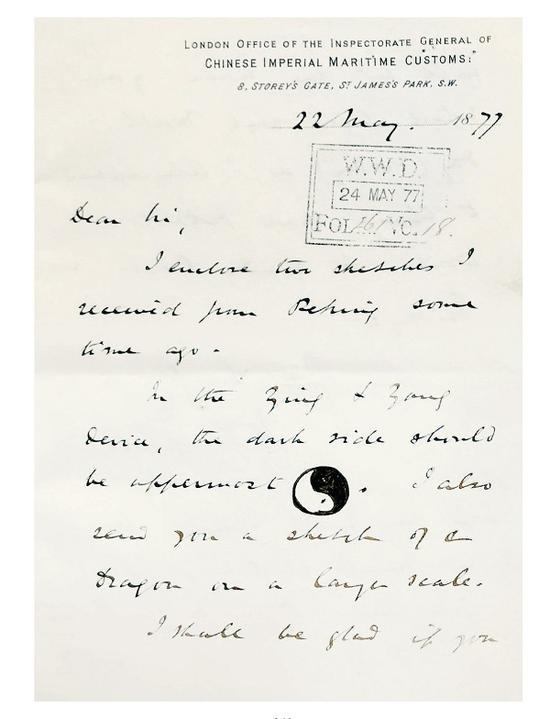 LONDON OFFICE OF THE INSPECTORATE GENERAL OF
CHINESE IMPERIAL MARITIME CUSTOMS:
8, STOREY'S GATE, ST JAMES'S PARK, S.W.
22 May. 1877
W.W.D.
24 MAY 77
FOL. No. 18.
Dear Sir,
I enclose two sketches I
received from Peking some
time ago.
In the Ying & Yang
Device, the dark side should
be uppermost . I also
send you a sketch of a
Dragon on a larger scale.
I shall be glad if you